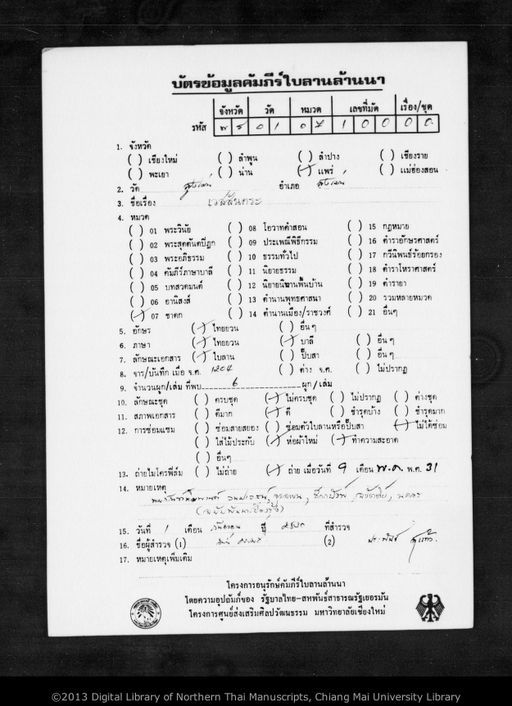 บัตรข้อมูลคัมภีร์ใบลานล้านนา
จังหวัด วัด หมวด เลขที่มัด เรื่อง/ชุด
รหัส พร 01 07 100 00
1. จังหวัด
( ) เชียงใหม่ ( ) ลำพูน ( ) ลำปาง ( ) เชียงราย
( ) พะเยา ( ) น่าน (/) แพร่ ( ) แม่ฮ่องสอน
2. วัด สูงเม่น อำเภอ สูงเม่น
3. ชื่อเรื่อง เวสสันตระ
4. หมวด
( ) 01 พระวินัย ( ) 08 โอวาทคำสอน ( ) 15 กฎหมาย
( ) 02 พระสุตตันตปิฎก ( ) 09 ประเพณีพิธีกรรม ( ) 16 ตำราอักษรศาสตร์
( ) 03 พระอภิธรรม ( ) 10 ธรรมทั่วไป ( ) 17 กวีนิพนธ์ร้อยกรอง
( ) 04 คัมภีร์ภาษาบาลี ( ) 11 นิยายธรรม ( ) 18 ตำราโหราศาสตร์
( ) 05 บทสวดมนต์ ( ) 12 นิยายนิทานพื้นบ้าน ( ) 19 ตำรายา
( ) 06 อานิสงส์ ( ) 13 ตำนานพุทธศาสนา ( ) 20 รวมหลายหมวด
(/) 07 ชาดก ( ) 14 ตำนานเมือง/ราชวงศ์ ( ) 21 อื่นๆ
5. อักษร (/) ไทยยวน ( ) อื่นๆ
6. ภาษา (/) ไทยยวน (/) บาลี ( ) อื่น ๆ
7. ลักษณะเอกสาร (/) ใบลาน ( ) ปั๊บสา ( ) อื่น ๆ
8. จาร/บันทึก เมื่อ จ.ศ. 1204 ( ) ต่าง จ.ศ. ( ) ไม่ปรากฏ
9. จำนวนผูก/เล่ม ที่พบ 6 ผูก/เล่ม
10. ลักษณะชุด ( ) ครบชุด (/) ไม่ครบชุด ( ) ไม่ปรากฏ ( ) ต่างชุด
11. สภาพเอกสาร ( ) ดีมาก (/) ดี ( ) ชำรุดบ้าง ( ) ชำรุดมาก
12. การซ่อมแซม ( ) ซ่อมสายสยอง ( ) ซ่อมตัวใบลานหรือปั๊บสา (/) ไม่ได้ซ่อม
( ) ใส่ไม้ประกับ (/) ห่อผ้าใหม่ (/) ทำความสะอาด
( ) อื่นๆ
13. ถ่ายไมโครฟิล์ม ( ) ไม่ถ่าย (/) ถ่าย เมื่อวันที่ 9 เดือน พ.ค. พ.ศ. 31
14. หมายเหตุ
15. วันที่ 1 เดือน ปี ที่สำรวจ
16. ชื่อผู้สำรวจ (1) (2)
17. หมายเหตุเพิ่มเติม
โครงการอนุรักษ์คัมภีร์ใบลานล้านนา
โดยความอุปถัมภ์ของ รัฐบาลไทย-สหพันธ์สาธารณรัฐเยอรมัน
โครงการศูนย์ส่งเสริมศิลปวัฒนธรรม มหาวิทยาลัยเชียงใหม่
©2013 Digital Library of Northern Thai Manuscripts, Chiang Mai University Library